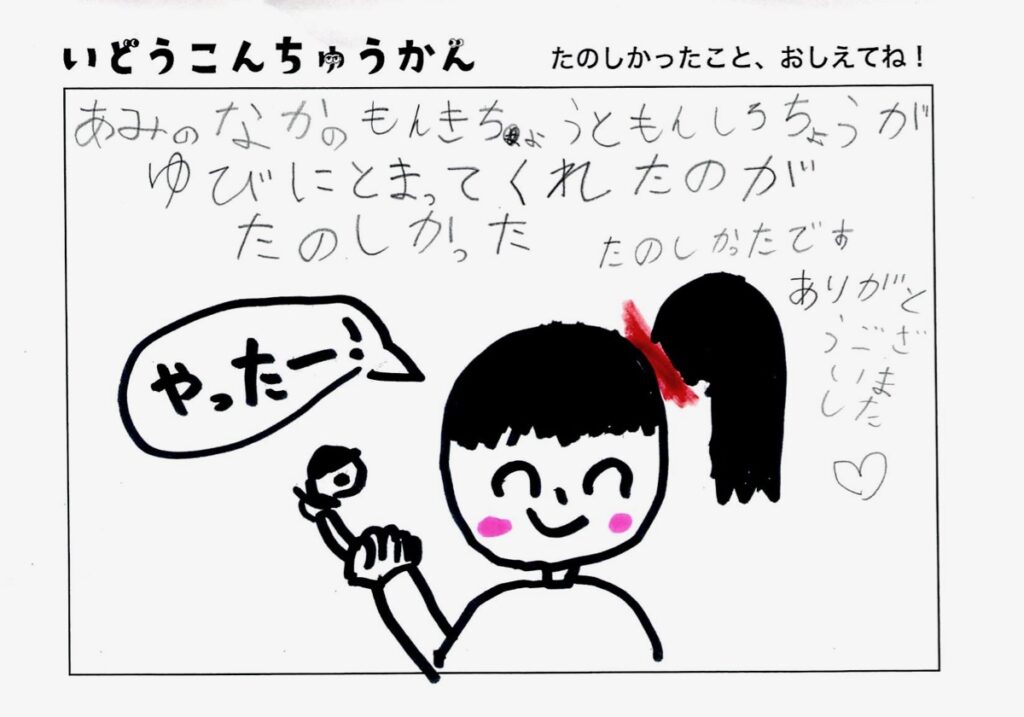 いどうこんちゅうかん
たのしかったこと、おしえてね！
あみのなかのもんきちょうともんしろちょうが
ゆびにとまってくれたのが
たのしかった
たのしかったです
ありがと
うござ
いま
した
やったー！